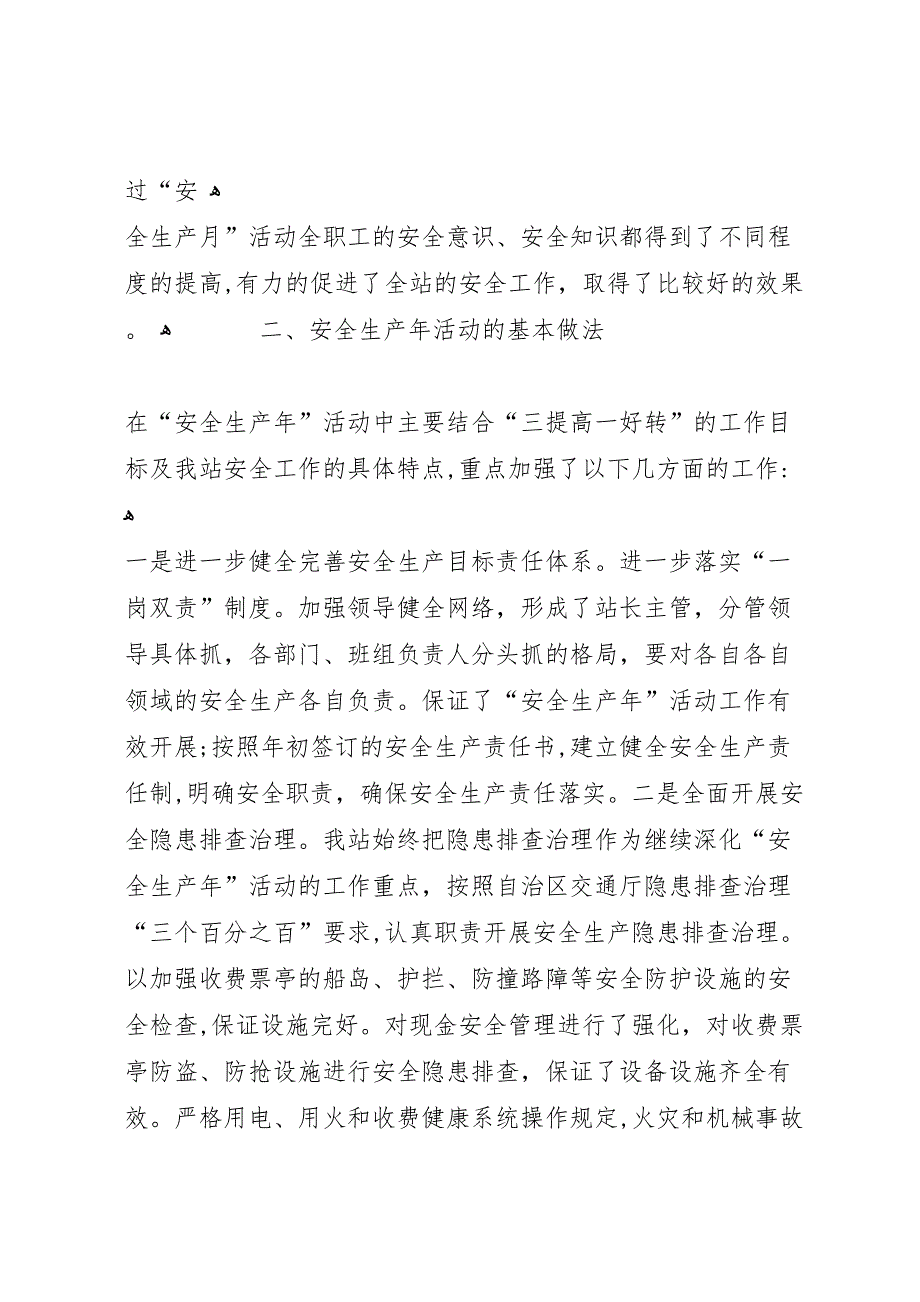 过“安 ﻫ
全生产月”活动全职工的安全意识、安全知识都得到了不同程
度的提高,有力的促进了全站的安全工作，取得了比较好的效果
。ﻫ 二、安全生产年活动的基本做法
在“安全生产年”活动中主要结合“三提高一好转”的工作目
标及我站安全工作的具体特点,重点加强了以下几方面的工作:
ﻫ
一是进一步健全完善安全生产目标责任体系。进一步落实“一
岗双责”制度。加强领导健全网络，形成了站长主管，分管领
导具体抓，各部门、班组负责人分头抓的格局，要对各自各自
领域的安全生产各自负责。保证了“安全生产年”活动工作有
效开展;按照年初签订的安全生产责任书,建立健全安全生产责
任制,明确安全职责，确保安全生产责任落实。二是全面开展安
全隐患排查治理。我站始终把隐患排查治理作为继续深化“安
全生产年”活动的工作重点，按照自治区交通厅隐患排查治理
“三个百分之百”要求,认真职责开展安全生产隐患排查治理。
以加强收费票亭的船岛、护拦、防撞路障等安全防护设施的安
全检查,保证设施完好。对现金安全管理进行了强化，对收费票
亭防盗、防抢设施进行安全隐患排查，保证了设备设施齐全有
效。严格用电、用火和收费健康系统操作规定,火灾和机械事故